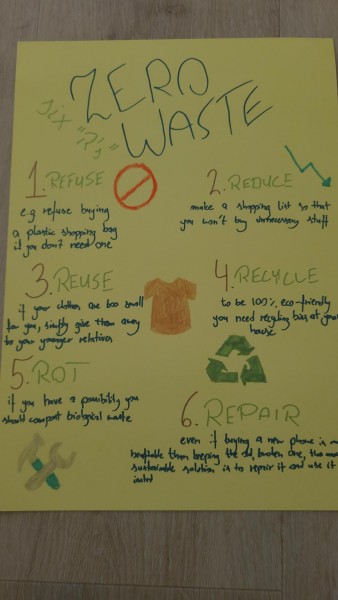 ZERO
WASTE
SIX "R's"
1. REFUSE
e.g refuse buying
a plastic shopping bag
if you don't need one
2. REDUCE
make a shopping list so that
you won't buy unnecessary stuff
3. REUSE
if your clothes are too small
for you, simply give them away
to your younger relatives
4. RECYCLE
to be 100% eco-friendly
you need recycling bins at your
house
5. ROT
if you have a possibility you
should compost biological waste
6. REPAIR
even if buying a new phone is
than keeping the old, broken one, the
sustainable solution is to repair it and use it